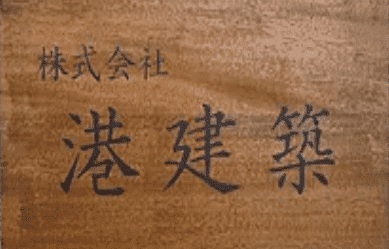 株式会社
港建築